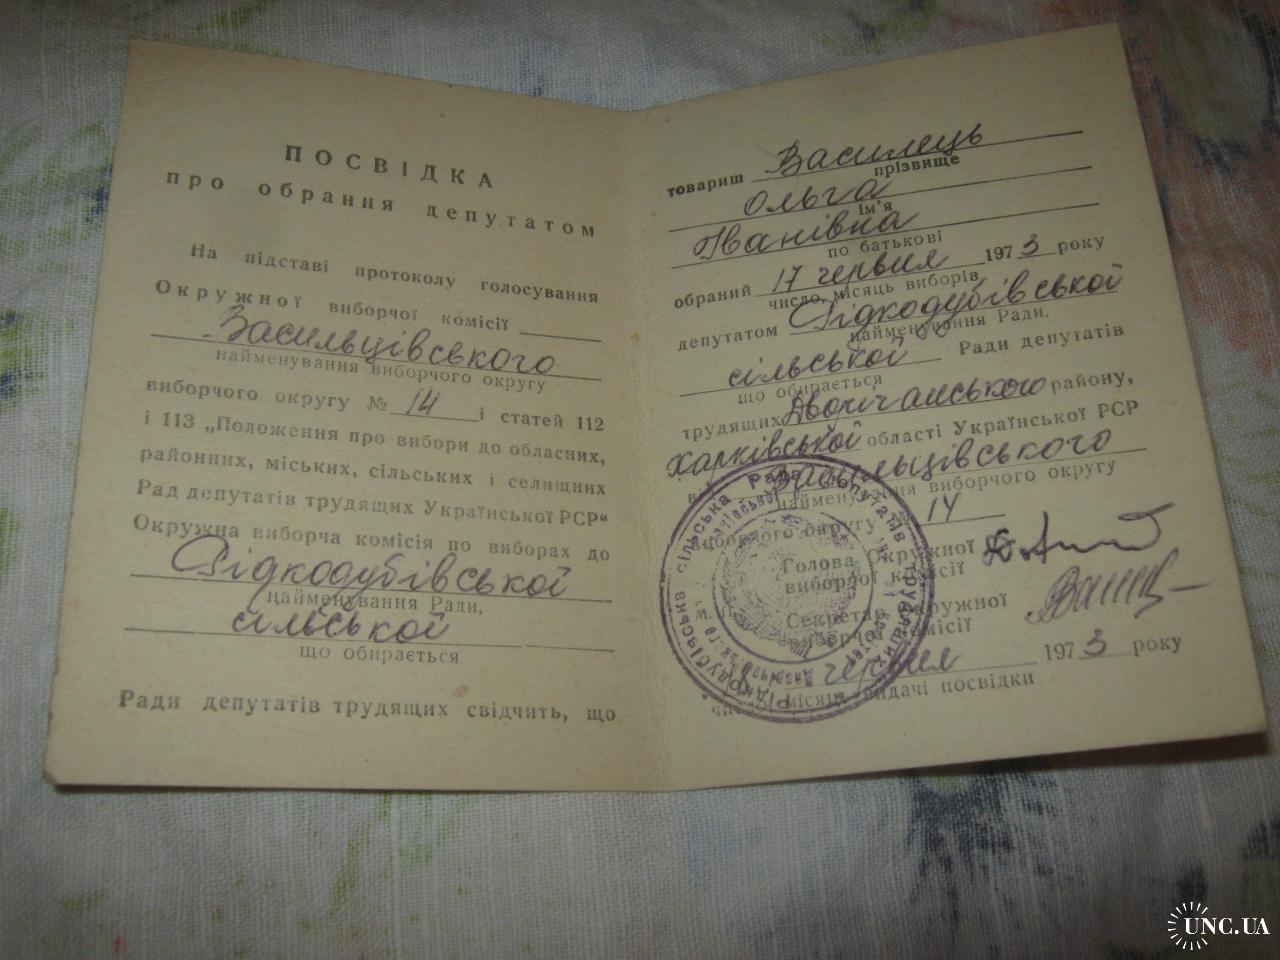 ПОСВІДКА
про обрання депутатом
На підставі протоколу голосування
Окружної виборчої комісії
Васильцівського
найменування виборчого округу
виборчого округу № 14 і статей 112
і 113 „Положення про вибори до обласних,
районних, міських, сільських і селищних
Рад депутатів трудящих Української РСР“
Окружна виборча комісія по виборах до
Рідкодубівської
найменування Ради,
сільської
що обирається
Ради депутатів трудящих свідчить, що
товариш Василець
прізвище
Ольга
ім'я
Іванівна
по батькові
обраний 17 червня 1973 року
число, місяць виборів
депутатом Рідкодубівської
найменування Ради,
сільської Ради депутатів
що обирається
трудящих Дворічанського району,
Харківської області Української РСР
від Васильцівського
найменування виборчого округу
виборчого округу № 14
Голова Окружної
виборчої комісії
Секретар Окружної
виборчої комісії
червня 1973 року
число, місяць видачі посвідки
Рідкодубівська сільська Рада депутатів трудящих
UNC.UA